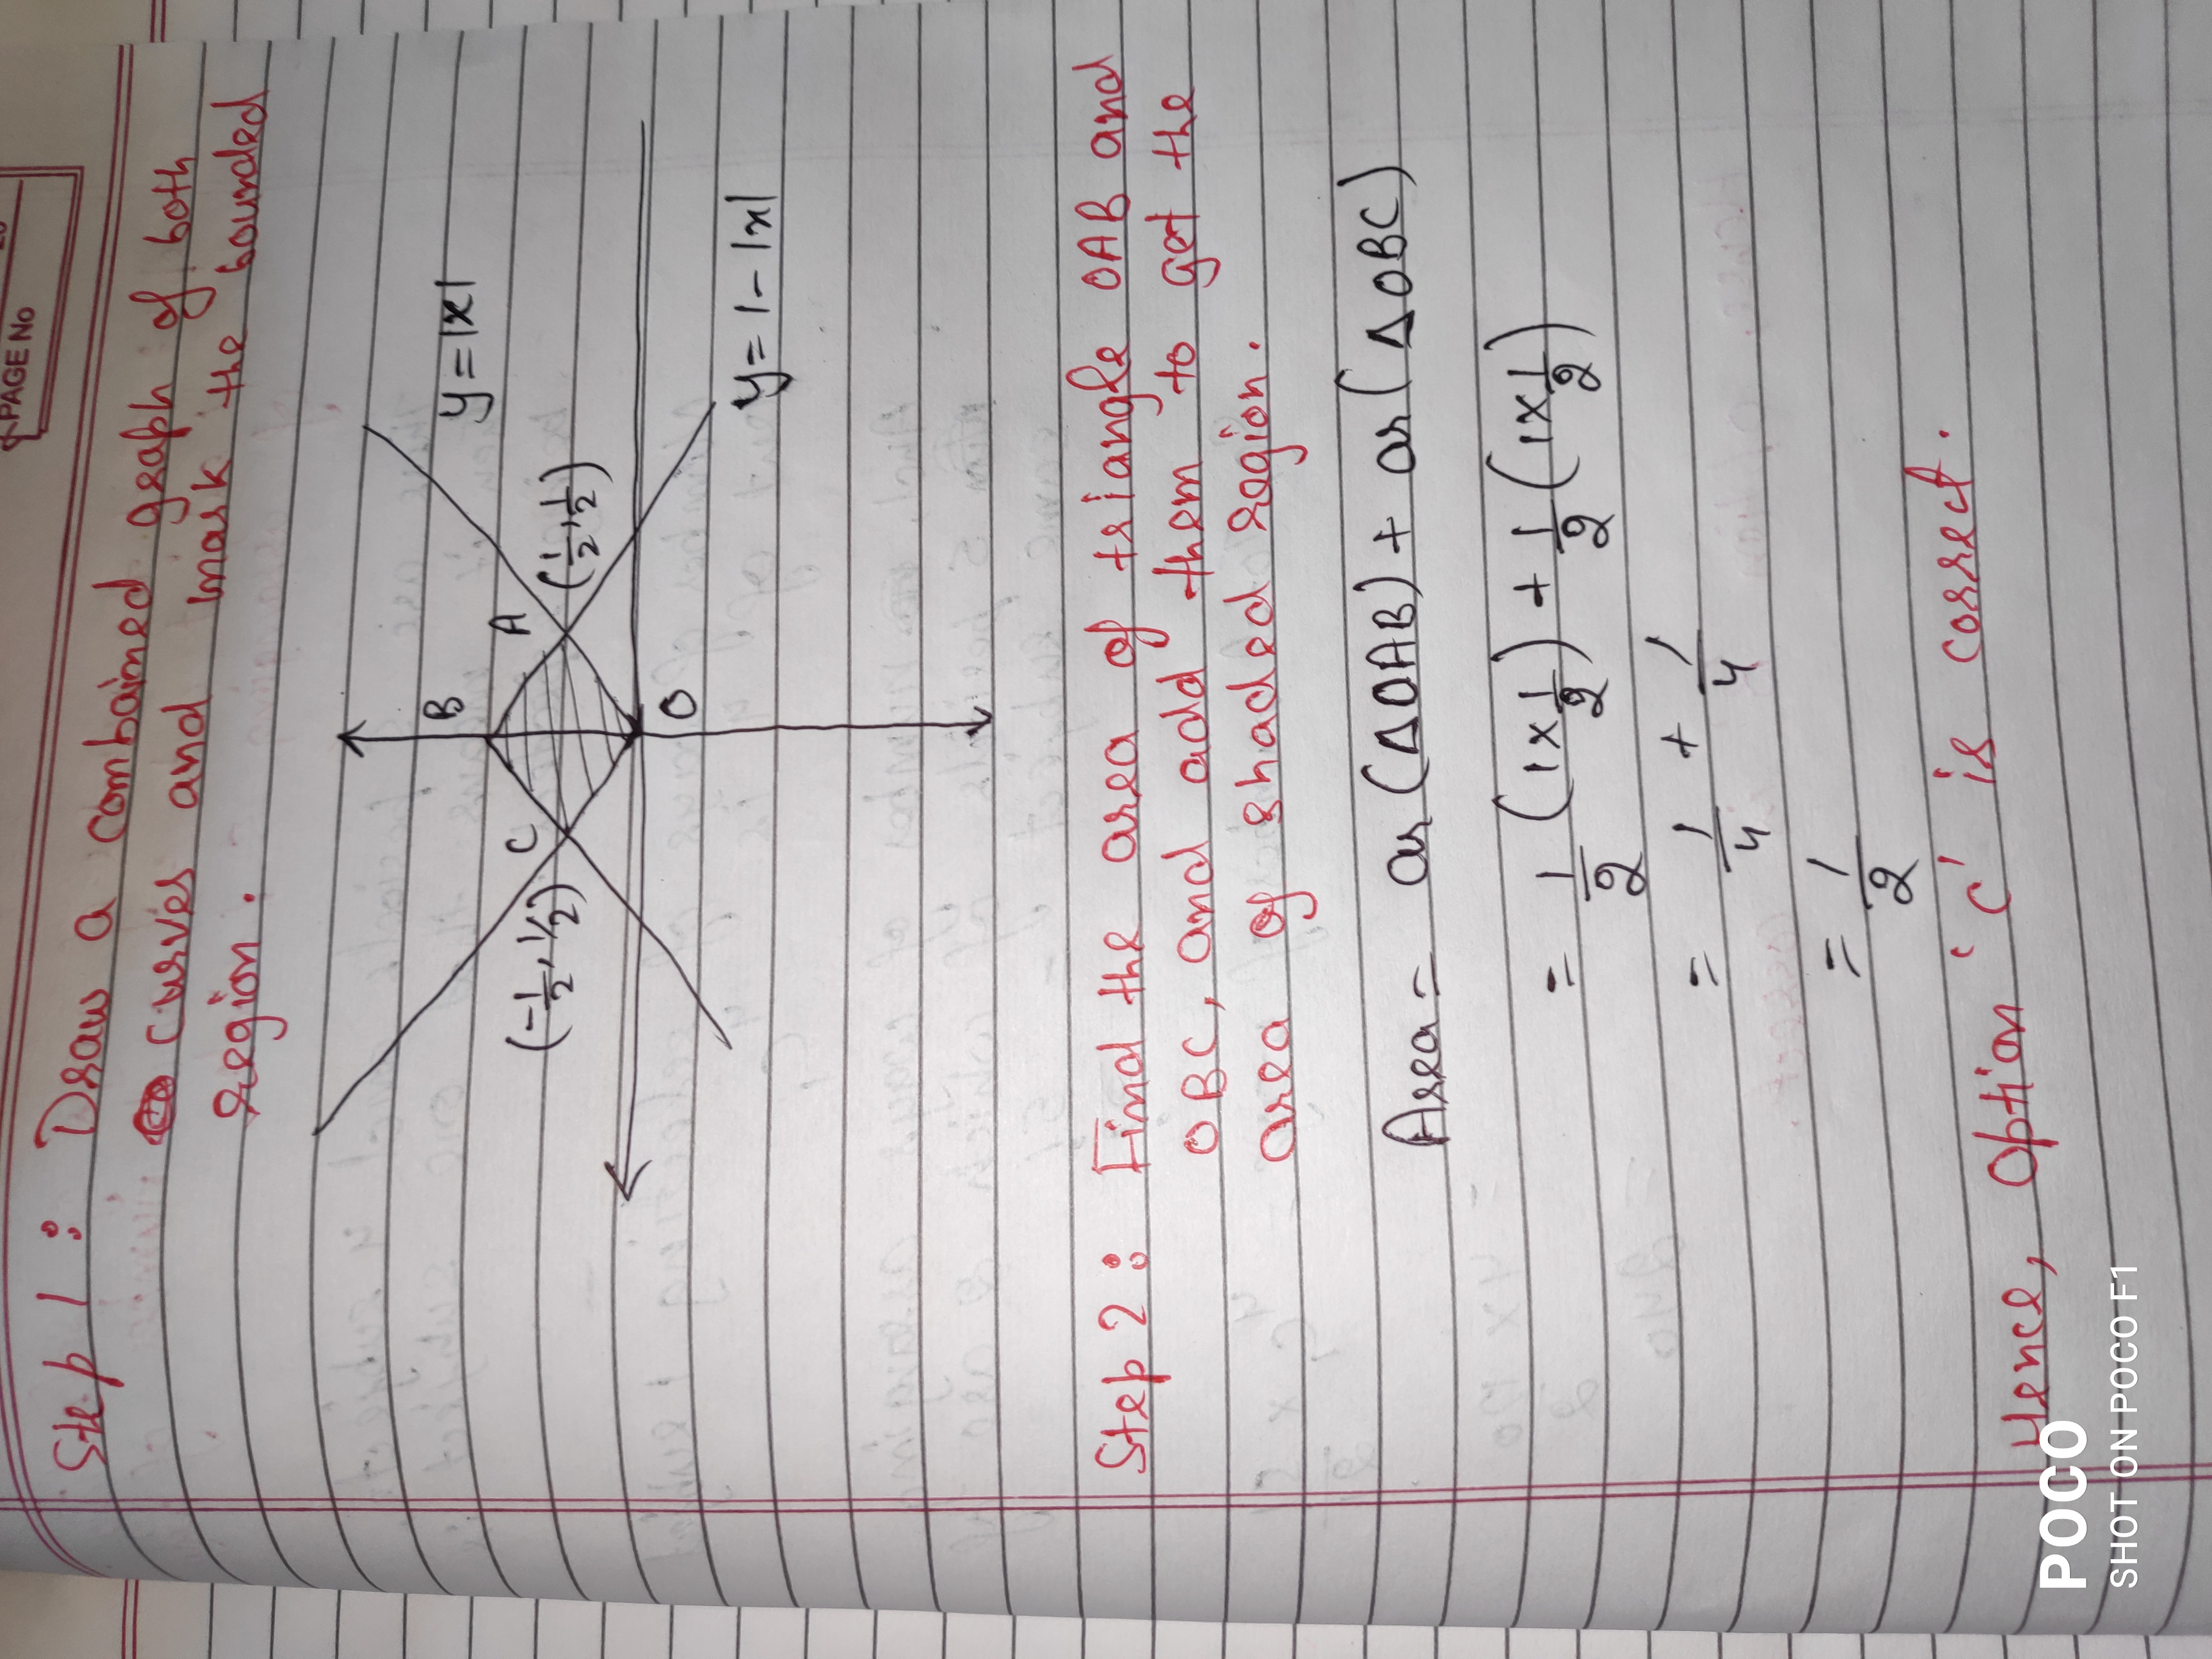 PAGE No
Step 1 : Draw a combained graph of both
curves and mark the bounded
region.
y = |x|
B
A
(1/2, 1/2)
C
(-1/2, 1/2)
O
y = 1 - |x|
Step 2 : Find the area of triangle OAB and
OBC, and add them to get the
area of shaded region.
Area = ar (ΔOAB) + ar (ΔOBC)
= 1/2 (1x1/2) + 1/2 (1x1/2)
= 1/4 + 1/4
= 1/2
Hence, Option 'C' is correct.
POCO
SHOT ON POCO F1